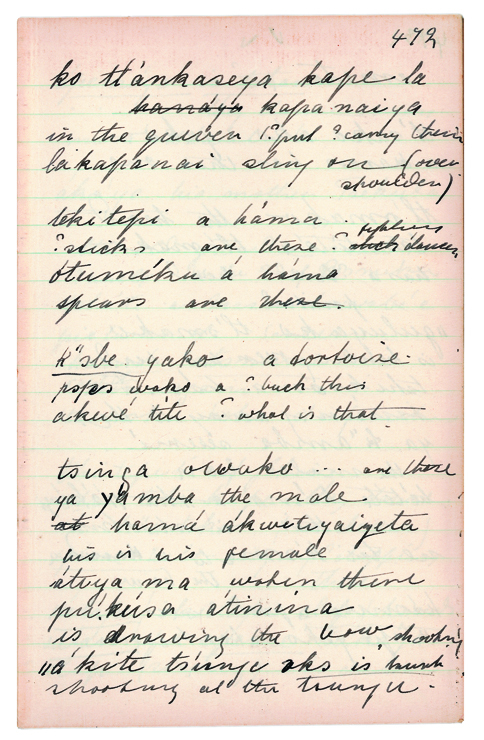 472
ko tlánkaseya kape la
kanáya kapanaiya
in the quiver ? put ? carry them
lakapanai sling on (over
shoulder)
tekitepi a háma
? sticks are these ? dances
otuméku á háma
spears are these.
k"sbe yako a tortoise.
yako a ? buck this
akwé tite ? what is that
tsinga owako ... are these
ya yamba the male
at hamá ákwetiyaigeta
his is his female
átiya ma woken there
púkúsa átinina
is drawing the bow shooting
"á kite tsinge oks is bank
shooting at the tsunge.